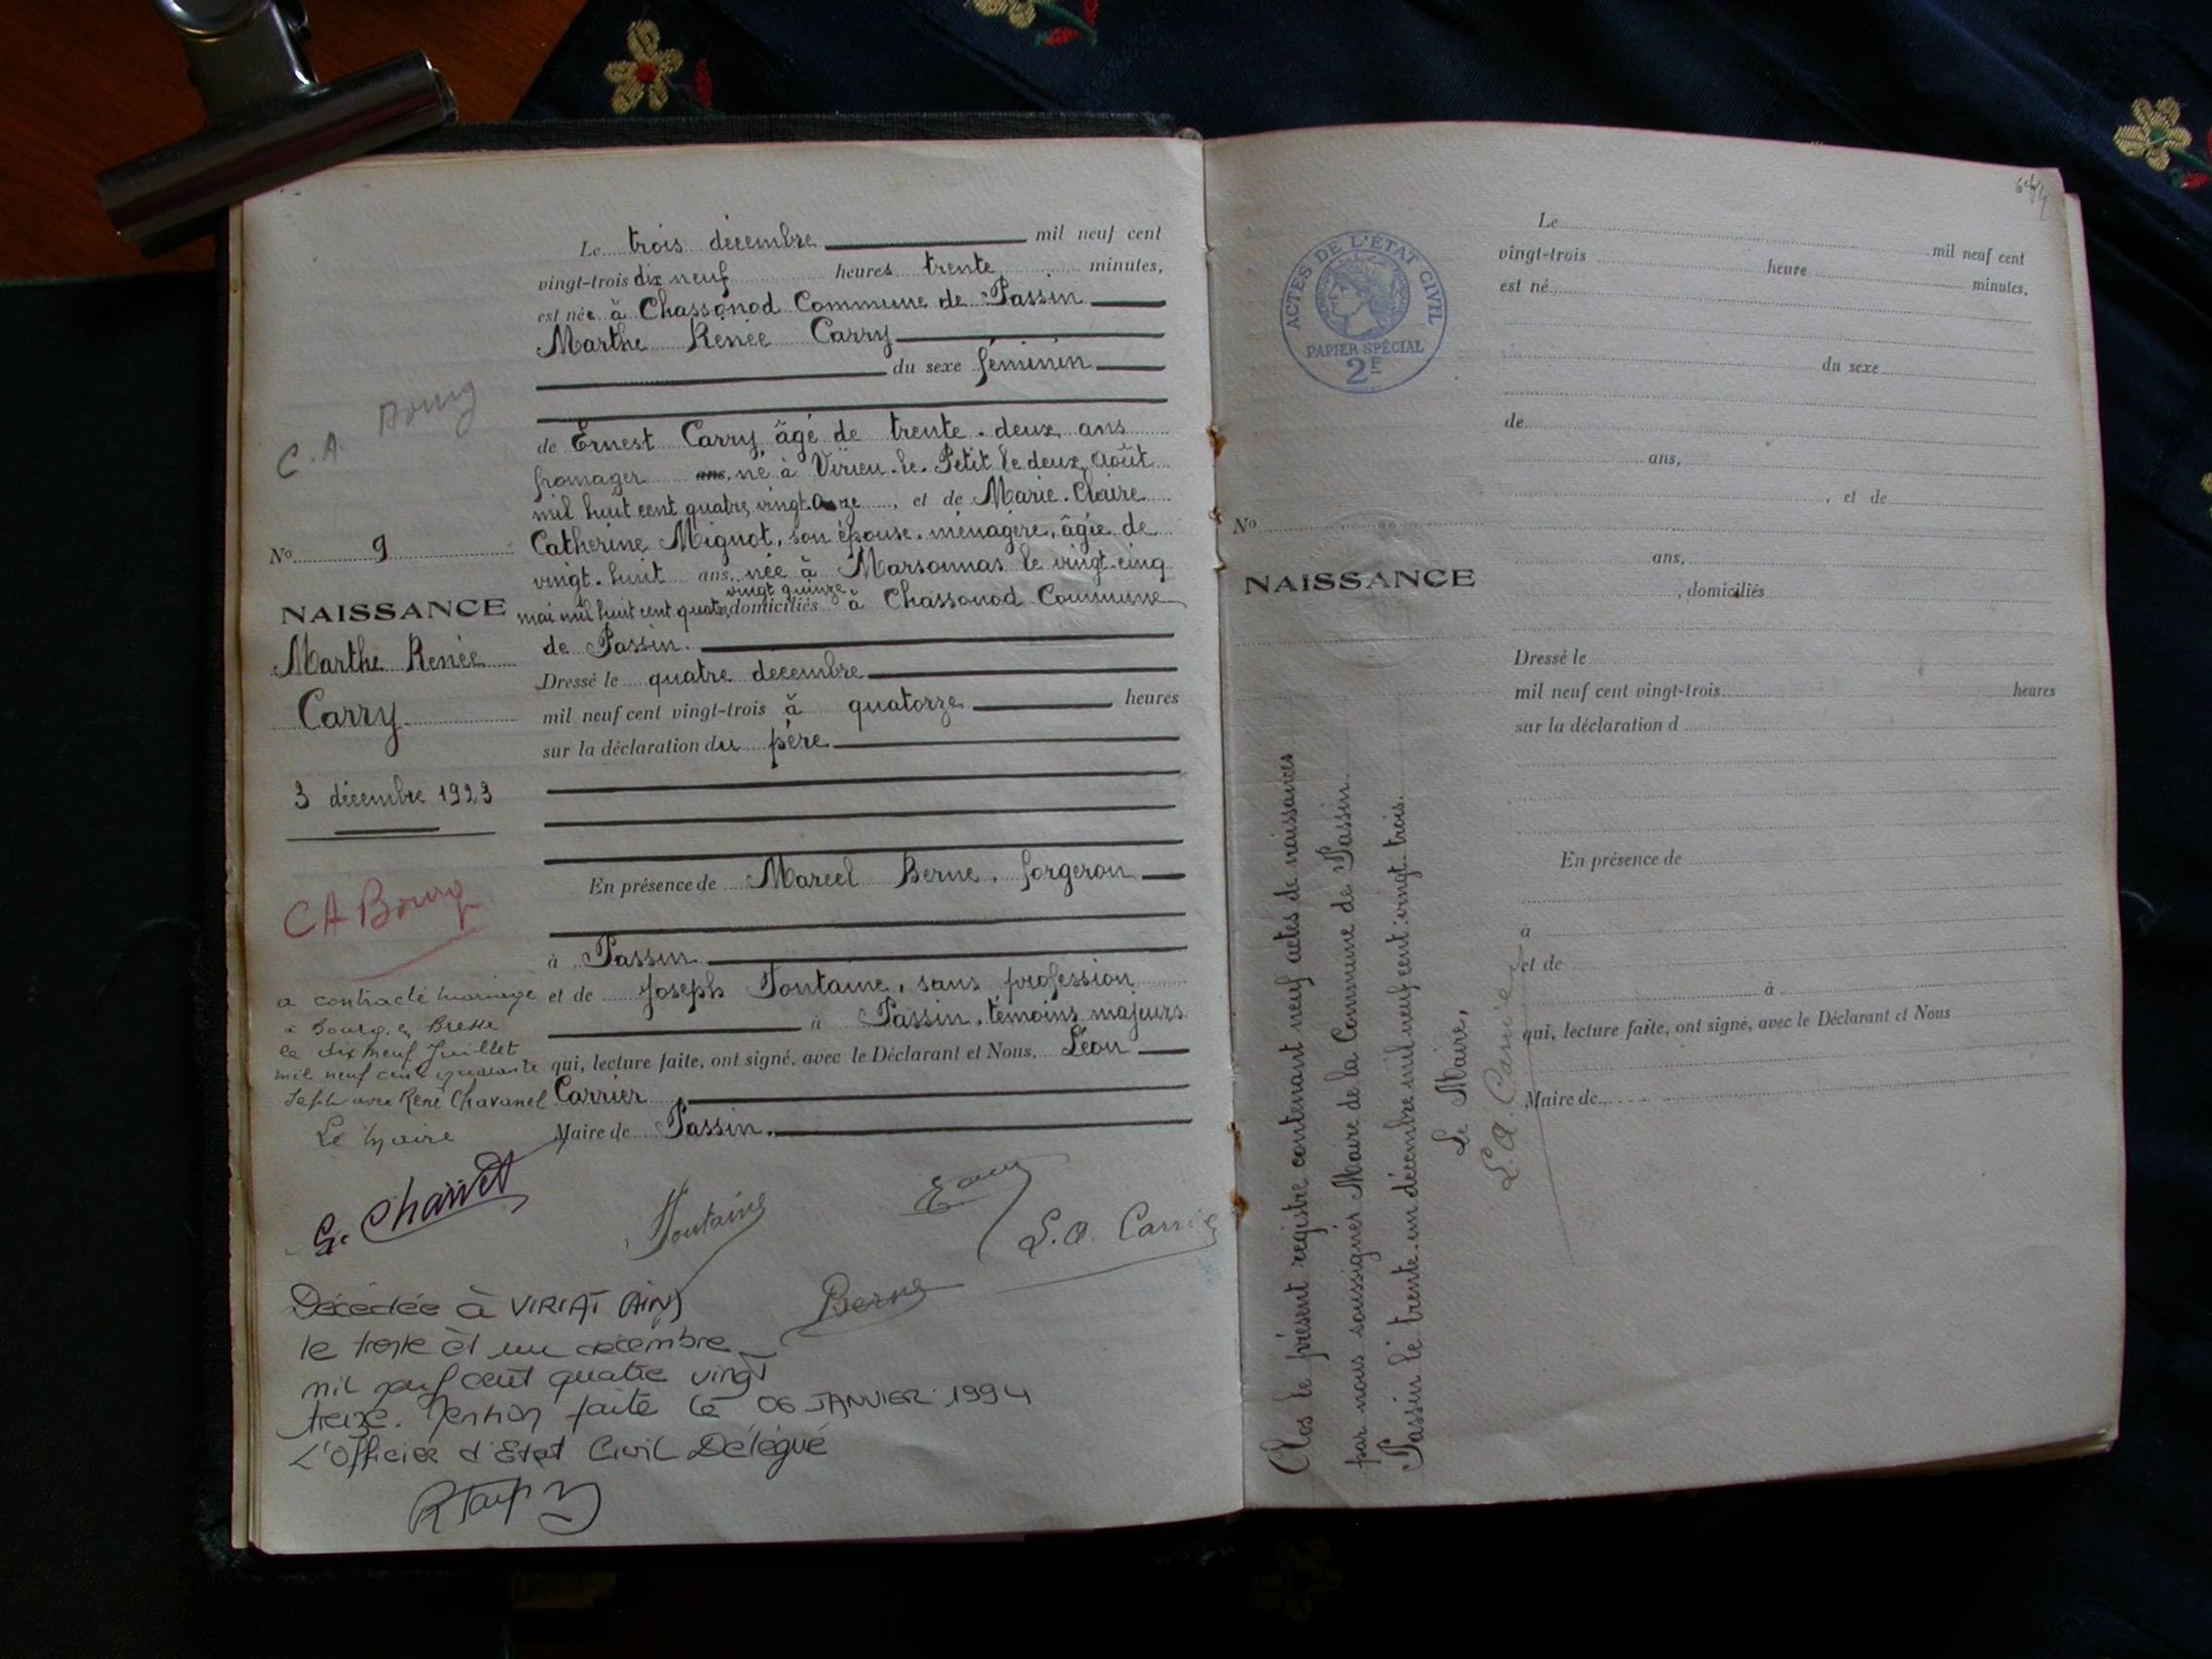 C.A. Bourg
No 9
NAISSANCE
Marthe Renée
Carry
3 décembre 1923
CA Bourg
a contracté mariage
à Bourg en Bresse
le dix neuf Juillet
mil neuf cent quarante
sept avec René Chavanel
Le Maire
G. Charvet
Le trois décembre mil neuf cent
vingt-trois dix neuf heures trente minutes,
est née à Chassonod Commune de Passin
Marthe Renée Carry
du sexe féminin
de Ernest Carry âgé de trente-deux ans
fromager ans, né à Virieu-le-Petit le deux Août
mil huit cent quatre vingt onze, et de Marie-Claire
Catherine Mignot, son épouse, ménagère, âgée de
vingt-huit ans, née à Marsonnas le vingt-cinq
vingt quinze
mai mil huit cent quatre domiciliés à Chassonod Commune
de Passin.
Dressé le quatre décembre
mil neuf cent vingt-trois à quatorze heures
sur la déclaration du père
En présence de Marcel Berne, forgeron
à Passin
et de Joseph Fontaine, sans profession
à Passin, témoins majeurs
qui, lecture faite, ont signé, avec le Déclarant et Nous, Léon
Carrier
Maire de Passin.
Fontaine
E Carry
L.A. Carrier
Berne
Décédée à VIRIAT (AIN)
le trente et un décembre
mil neuf cent quatre vingt
treize. Mention faite le 06 JANVIER 1994
L'Officier d'Etat Civil Délégué
ACTES DE L'ETAT CIVIL
PAPIER SPÉCIAL
2F
No
NAISSANCE
Le mil neuf cent
vingt-trois heure minutes,
est né
du sexe
de
ans,
, et de
ans,
, domiciliés
Dressé le
mil neuf cent vingt-trois heures
sur la déclaration d
En présence de
à
et de
à
qui, lecture faite, ont signé, avec le Déclarant et Nous
Maire de
Clos le présent registre contenant neuf actes de naissances
par nous soussigner Maire de la Commune de Passin
Passin le trente-un décembre mil neuf cent vingt-trois.
Le Maire,
L.A. Carrier